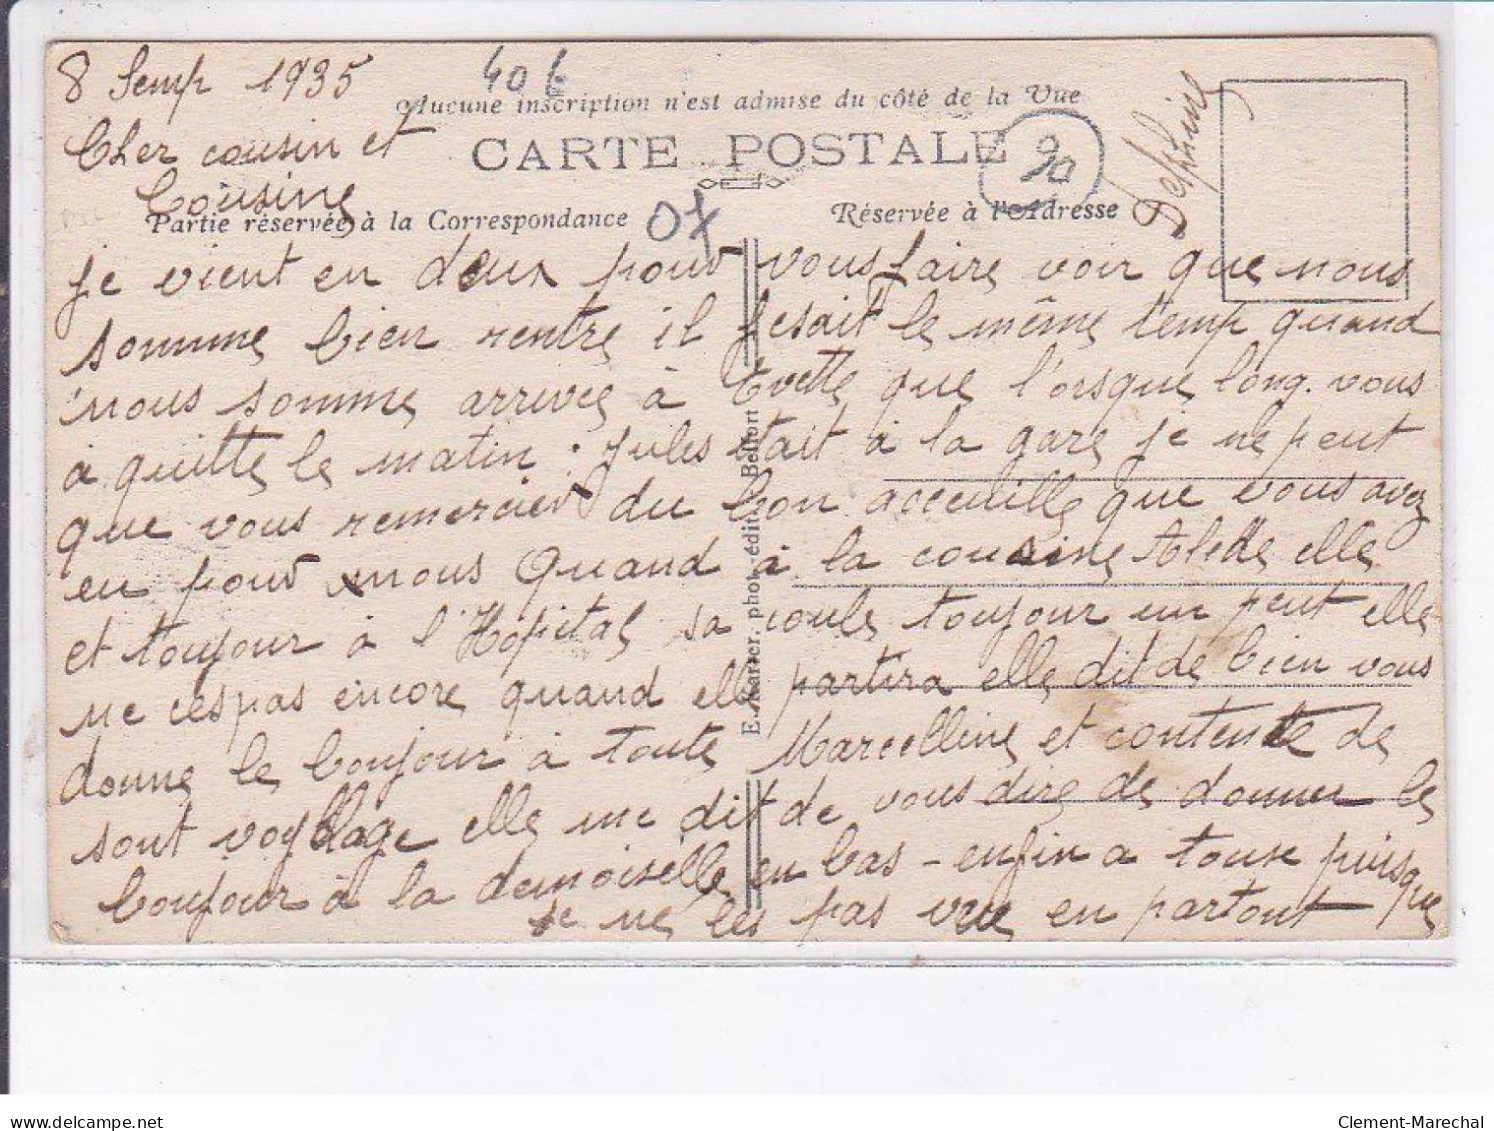 8 Semp 1935
40 f
Aucune inscription n'est admise du côté de la Vue
Cher cousin et
CARTE POSTALE
90
Delphine
Cousine
Partie réservée à la Correspondance
Réservée à l'Adresse
je vient en deux pour vous faire voir que nous
somme bien rentre il fesait le même temp quand
nous somme arrivée à Evette que l'orsque long. vous
a quitte le matin : Jules était à la gare je ne peut
que vous remercier du bon acceuille que vous avez
eu pour nous Quand à la cousine elle
et toujour à l'Hopital sa coule toujour un peut elle
ne cespas encore quand elle partira elle dit de bien vous
donne le bonjour à toute Marcelline et contente de
sont voyage elle me dit de vous dire de donner le
bonjour à la demoiselle en bas - enfin a tous puisque
je ne les pas vue en partout
E. Karrer, phot. édit. Belfort
delcampe.net
Clement-Marechal